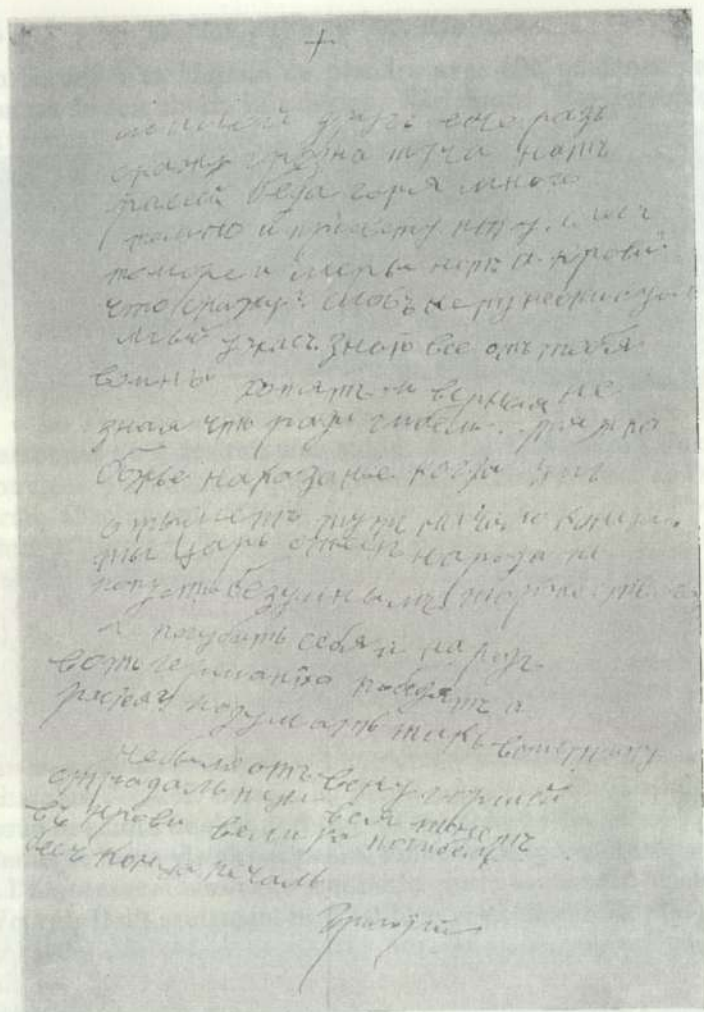 +
милой другъ есчо разъ
скажу грозна туча натъ
расеей беда горя много
темно и просвету нету. слесъ
то море и меры нетъ а крови?
что скажу? словъ нету неописуо
мый ужасъ. знаю все отъ тебя
воины хотятъ и верныя не
зная что ради гибели. тяжко
божье наказанье когда ум
отыметъ тутъ начало конца.
ты царь отецъ народа не
попусти безумнымъ торжествовать
и погубить себя и народъ
вотъ германию победятъ а
расея? подумать такъ воистину
не было отъ веку горшей
страдалицы вся тонетъ
въ крови велика погибель
бесъ конца печаль
Григорий